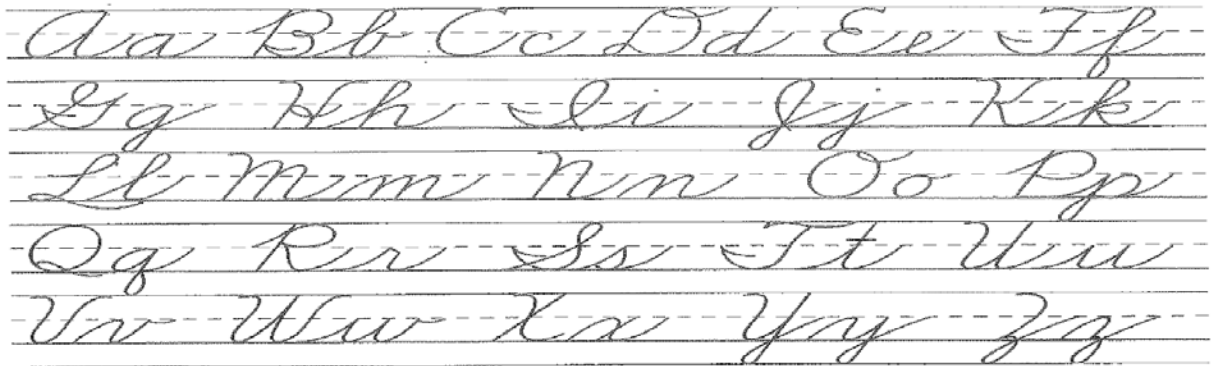 Aa Bb Cc Dd Ee Ff
Gg Hh Ii Jj Kk
Ll Mm Nn Oo Pp
Qq Rr Ss Tt Uu
Vv Ww Xx Yy Zz